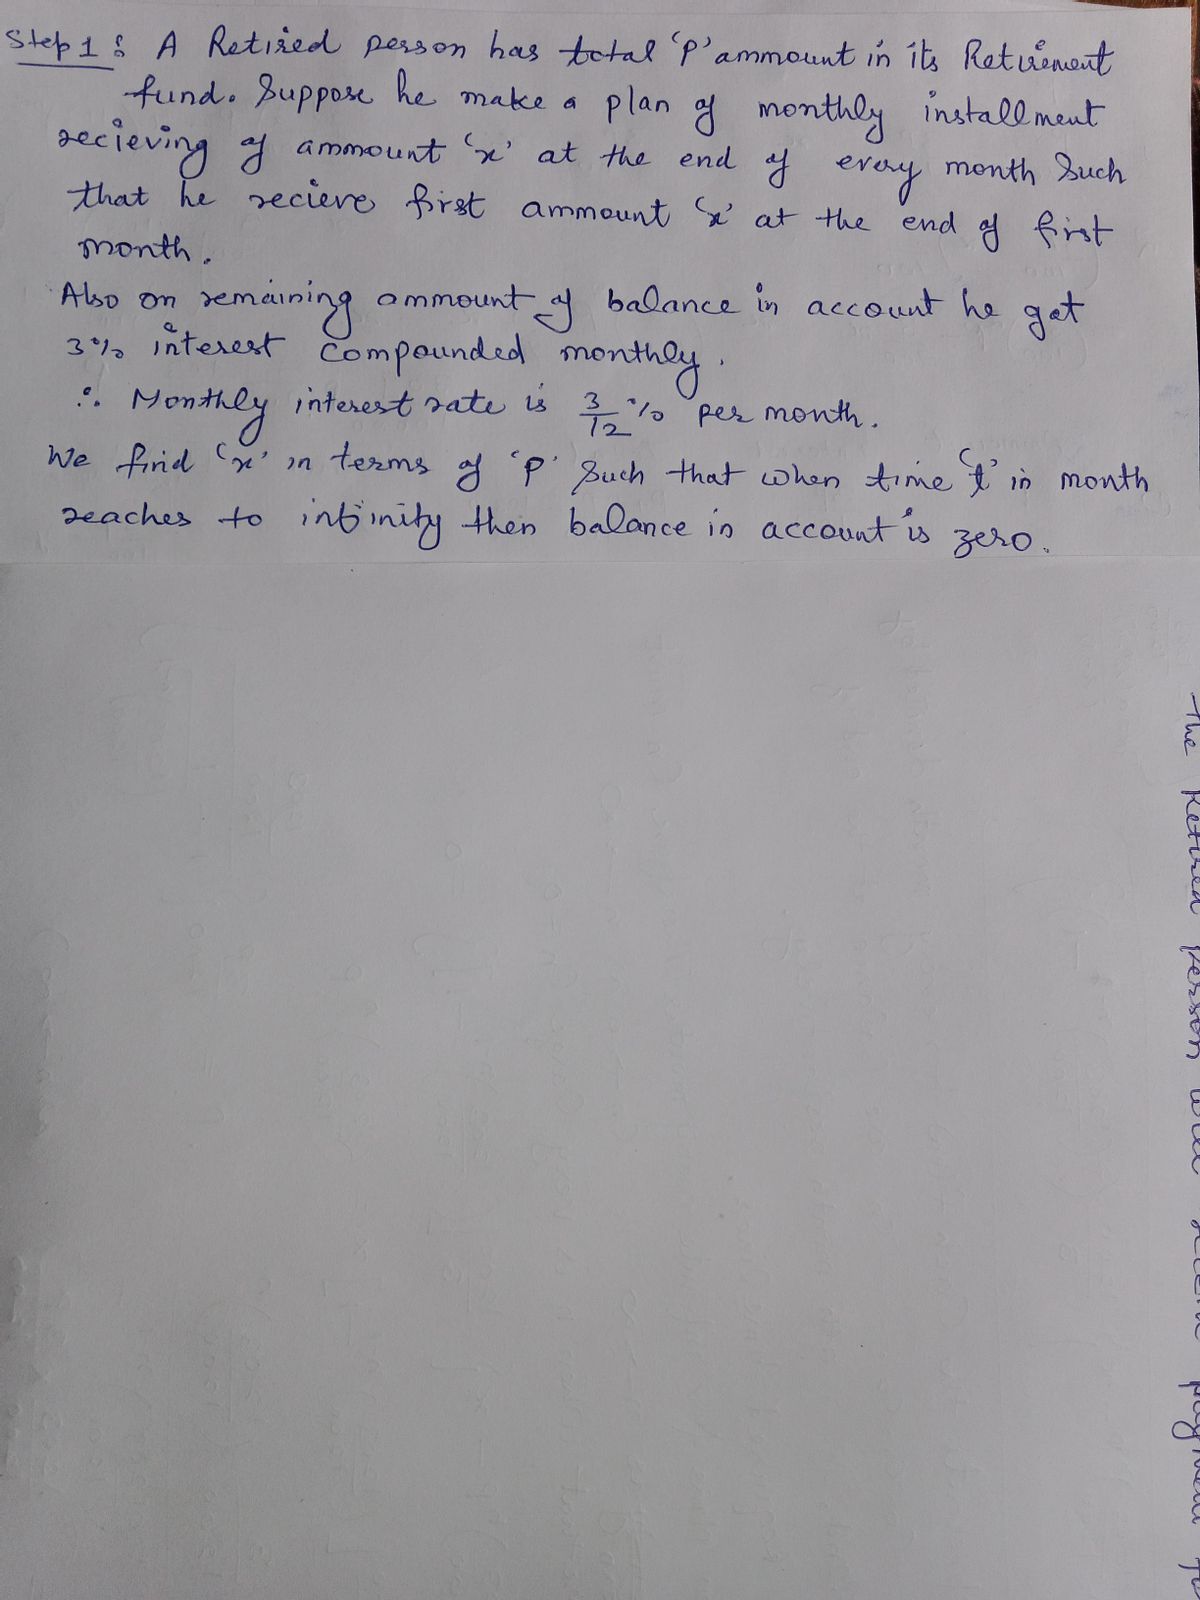 Step 1 : A Retired person has total 'P' ammount in its Retirement
fund. Suppose he make a plan of monthly installment
recieving of ammount 'x' at the end of every month Such
that he recieve first ammount 'x' at the end of first
month.
Also on remaining ammount of balance in account he get
3% interest compounded monthly.
∴ Monthly interest rate is 3/12 % per month.
We find 'x' in terms of 'P' Such that when time 't' in month
reaches to infinity then balance in account is zero.
the Retired person will payment